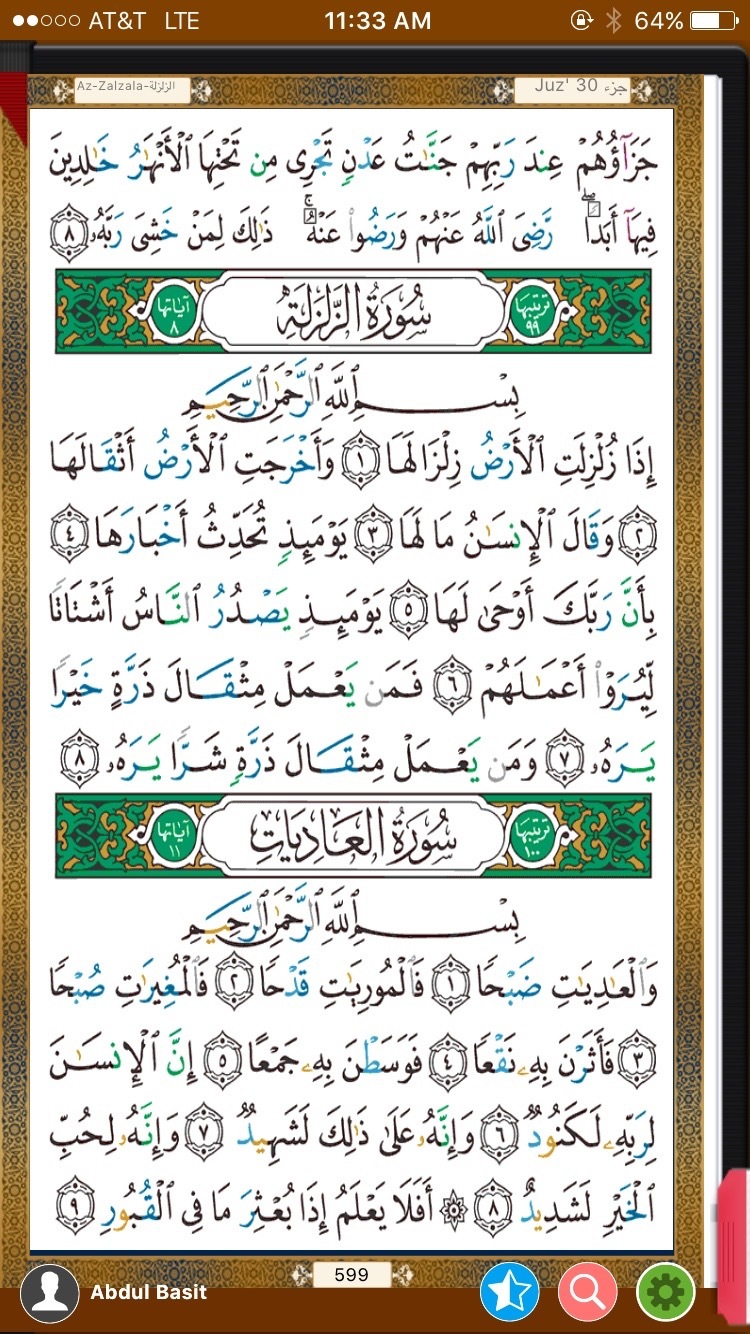 AT&T LTE 11:33 AM 64%
Az-Zalzala-الزلزلة Juz' 30 جزء
جَزَآؤُهُمْ عِندَ رَبِّهِمْ جَنَّـٰتُ عَدْنٍ تَجْرِى مِن تَحْتِهَا ٱلْأَنْهَـٰرُ خَـٰلِدِينَ
فِيهَآ أَبَدًا ۖ رَّضِىَ ٱللَّهُ عَنْهُمْ وَرَضُوا۟ عَنْهُ ۚ ذَٰلِكَ لِمَنْ خَشِىَ رَبَّهُۥ ٨
ترتيبها ٩٩ سُورَةُ الزَّلْزَلَةِ آياتها ٨
بِسْمِ ٱللَّهِ ٱلرَّحْمَـٰنِ ٱلرَّحِيمِ
إِذَا زُلْزِلَتِ ٱلْأَرْضُ زِلْزَالَهَا ١ وَأَخْرَجَتِ ٱلْأَرْضُ أَثْقَالَهَا
٢ وَقَالَ ٱلْإِنسَـٰنُ مَا لَهَا ٣ يَوْمَئِذٍ تُحَدِّثُ أَخْبَارَهَا ٤
بِأَنَّ رَبَّكَ أَوْحَىٰ لَهَا ٥ يَوْمَئِذٍ يَصْدُرُ ٱلنَّاسُ أَشْتَاتًا
لِّيُرَوْا۟ أَعْمَـٰلَهُمْ ٦ فَمَن يَعْمَلْ مِثْقَالَ ذَرَّةٍ خَيْرًا
يَرَهُۥ ٧ وَمَن يَعْمَلْ مِثْقَالَ ذَرَّةٍ شَرًّا يَرَهُۥ ٨
ترتيبها ١٠٠ سُورَةُ العَادِيَاتِ آياتها ١١
بِسْمِ ٱللَّهِ ٱلرَّحْمَـٰنِ ٱلرَّحِيمِ
وَٱلْعَـٰدِيَـٰتِ ضَبْحًا ١ فَٱلْمُورِيَـٰتِ قَدْحًا ٢ فَٱلْمُغِيرَٰتِ صُبْحًا
٣ فَأَثَرْنَ بِهِۦ نَقْعًا ٤ فَوَسَطْنَ بِهِۦ جَمْعًا ٥ إِنَّ ٱلْإِنسَـٰنَ
لِرَبِّهِۦ لَكَنُودٌ ٦ وَإِنَّهُۥ عَلَىٰ ذَٰلِكَ لَشَهِيدٌ ٧ وَإِنَّهُۥ لِحُبِّ
ٱلْخَيْرِ لَشَدِيدٌ ٨ ۞ أَفَلَا يَعْلَمُ إِذَا بُعْثِرَ مَا فِى ٱلْقُبُورِ ٩
599
Abdul Basit